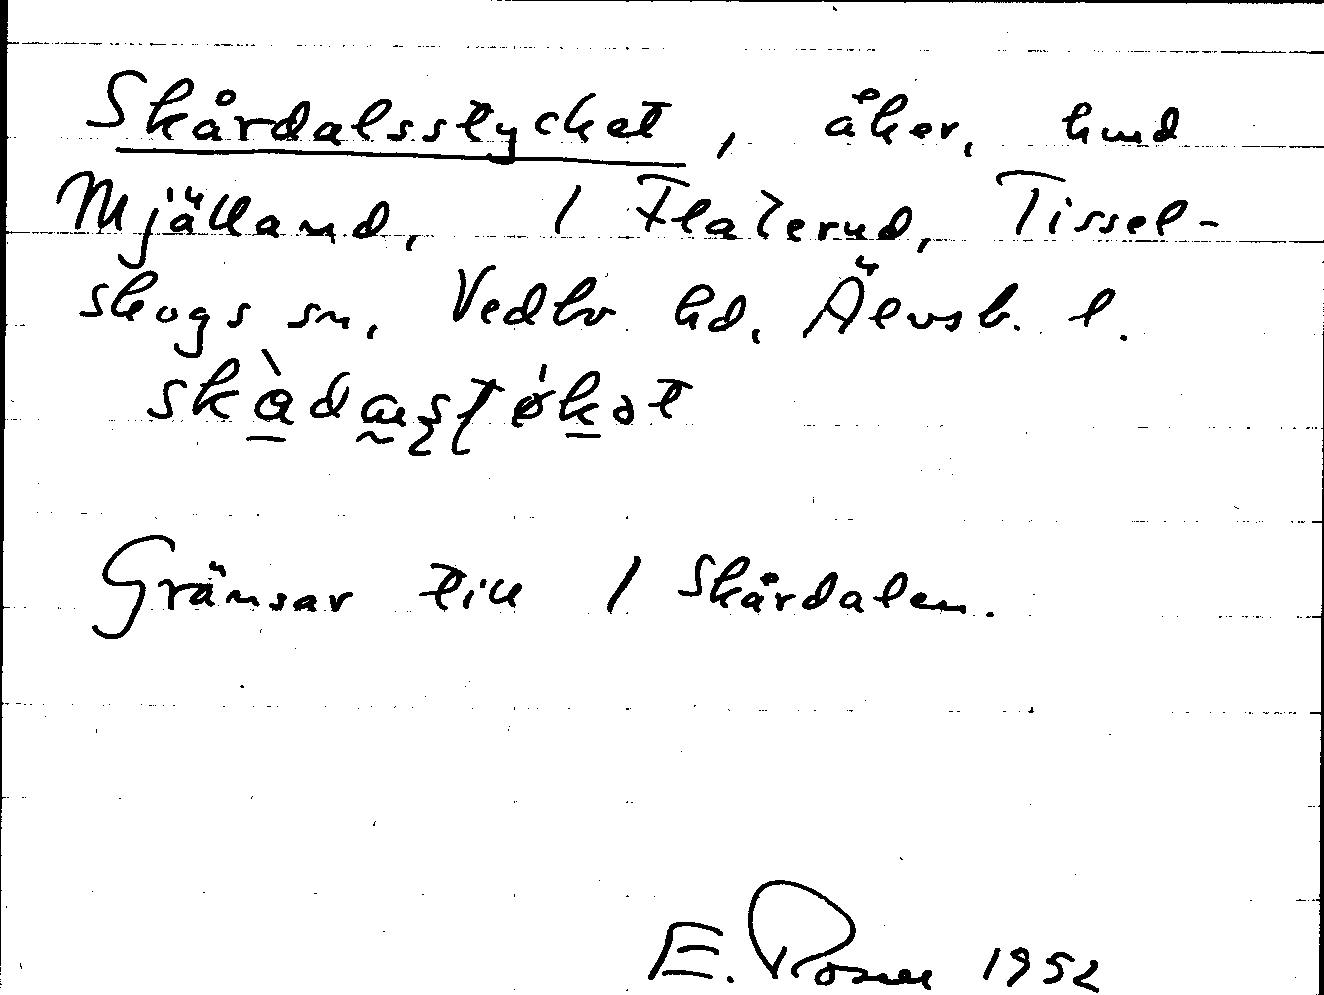 Skårdalsstycket, åker, hmd
Mjälland, / Flaterud, Tissel-
skogs sn, Vedbo hd, Älvsb. l.
Gränsar till / Skårdalen.
E. 1952